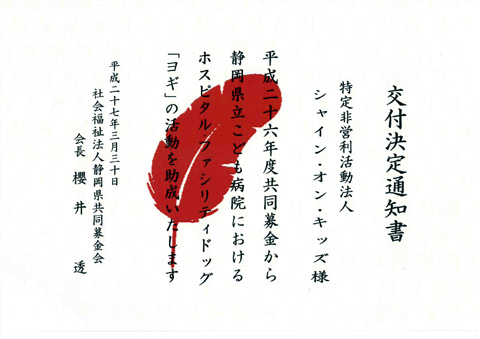 交付決定通知書
特定非営利活動法人
シャイン・オン・キッズ様
平成二十六年度共同募金から
静岡県立こども病院における
ホスピタルファシリティドッグ
「ヨギ」の活動を助成いたします
平成二十七年三月三十日
社会福祉法人静岡県共同募金会
会長 櫻井 透